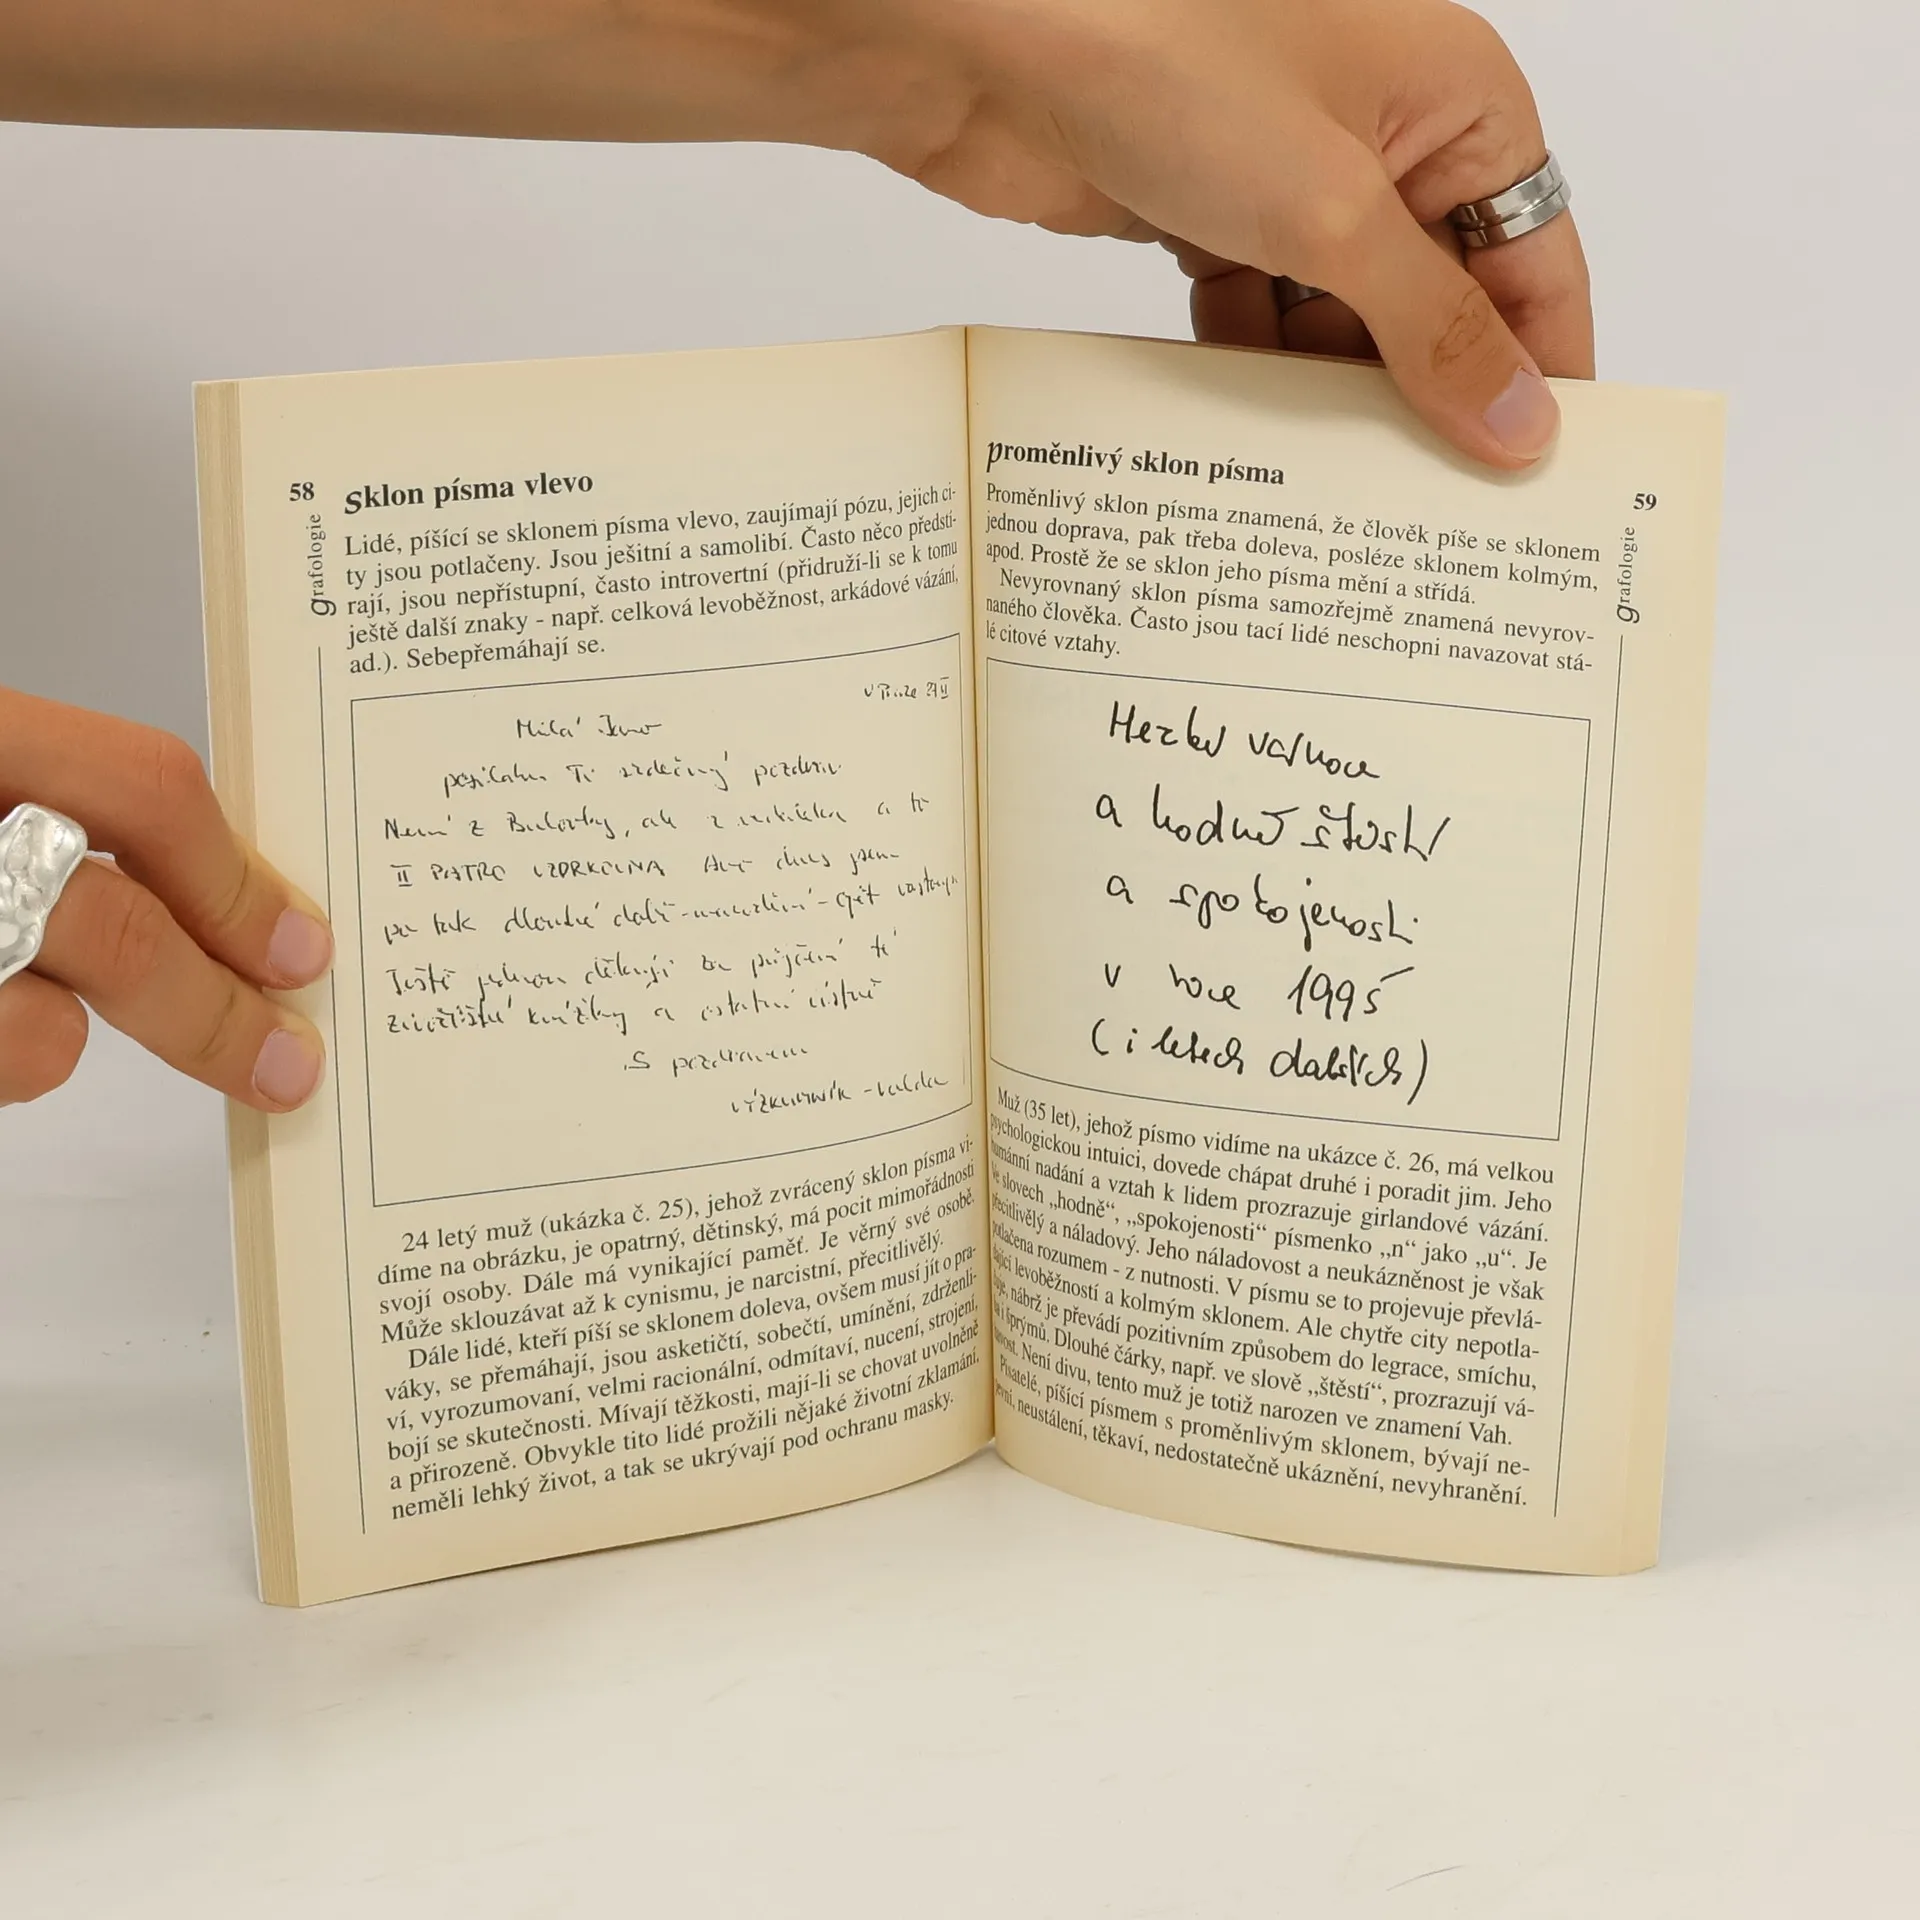 58
grafologie
sklon písma vlevo
Lidé, píšící se sklonem písma vlevo, zaujímají pózu, jejich ci-
ty jsou potlačeny. Jsou ješitní a samolibí. Často něco předstí-
rají, jsou nepřístupní, často introvertní (přidruží-li se k tomu
ještě další znaky - např. celková levoběžnost, arkádové vázání,
ad.). Sebepřemáhají se.
Milá
Ti srdečný pozdrav
Není z Bulovky, ale z a to
II PATRO VZORKOVNA dnes jsem
po tak dlouhé době - - opět
Ještě jednou děkuji za půjčení té
knížky a ostatní
S pozdravem
výzkumník -
24 letý muž (ukázka č. 25), jehož zvrácený sklon písma vi-
díme na obrázku, je opatrný, dětinský, má pocit mimořádnosti
svojí osoby. Dále má vynikající paměť. Je věrný své osobě.
Může sklouzávat až k cynismu, je narcistní, přecitlivělý.
Dále lidé, kteří píší se sklonem doleva, ovšem musí jít o pra-
váky, se přemáhají, jsou asketičtí, sobečtí, umínění, zdrženli-
ví, vyrozumovaní, velmi racionální, odmítaví, nucení, strojení,
bojí se skutečnosti. Mívají těžkosti, mají-li se chovat uvolněně
a přirozeně. Obvykle tito lidé prožili nějaké životní zklamání,
neměli lehký život, a tak se ukrývají pod ochranu masky.
59
grafologie
proměnlivý sklon písma
Proměnlivý sklon písma znamená, že člověk píše se sklonem
jednou doprava, pak třeba doleva, posléze sklonem kolmým,
apod. Prostě že se sklon jeho písma mění a střídá.
Nevyrovnaný sklon písma samozřejmě znamená nevyrov-
naného člověka. Často jsou tací lidé neschopni navazovat stá-
lé citové vztahy.
Hezké vánoce
a hodně štěstí
a spokojenosti
v roce 1995
(i letech dalších)
Muž (35 let), jehož písmo vidíme na ukázce č. 26, má velkou
psychologickou intuici, dovede chápat druhé i poradit jim. Jeho
humánní nadání a vztah k lidem prozrazuje girlandové vázání.
Ve slovech „hodně“, „spokojenosti“ písmenko „n“ jako „u“. Je
přecitlivělý a náladový. Jeho náladovost a neukázněnost je však
potlačena rozumem - z nutnosti. V písmu se to projevuje převlá-
dající levoběžností a kolmým sklonem. Ale chytře city nepotla-
čuje, nábrž je převádí pozitivním způsobem do legrace, smíchu,
ba i šprýmů. Dlouhé čárky, např. ve slově „štěstí“, prozrazují vá-
Není divu, tento muž je totiž narozen ve znamení Vah.
Pisatelé, píšící písmem s proměnlivým sklonem, bývají ne-
neustálení, těkaví, nedostatečně ukáznění, nevyhranění.